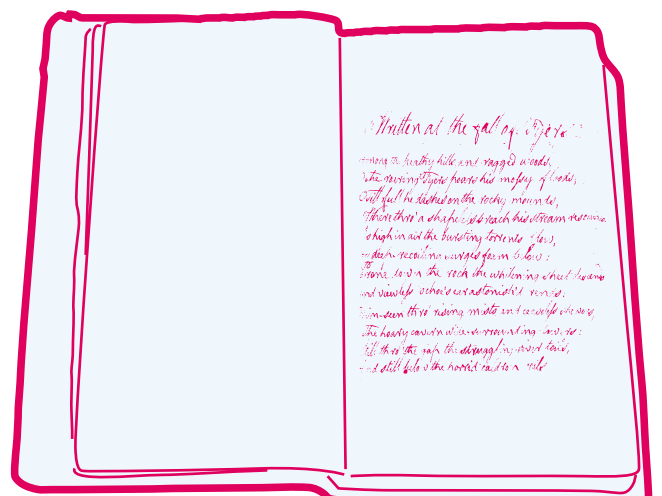 Written at the fall of Fyers
Among the heathy hills and ragged woods,
The roaring Fyers pours his mossy floods,
Till full he dashes on the rocky mounds,
Where thro' a shapeless breach his stream resounds
As high in air the bursting torrents flow,
As deep recoiling surges foam below:
Prone down the rock the whitening sheet descends
And viewless echo's ear astonish'd rends:
Dim-seen thro' rising mists and ceaseless showers,
The hoary cavern wide-surrounding lowers:
Still thro' the gap the struggling river toils,
And still below the horrid caldron